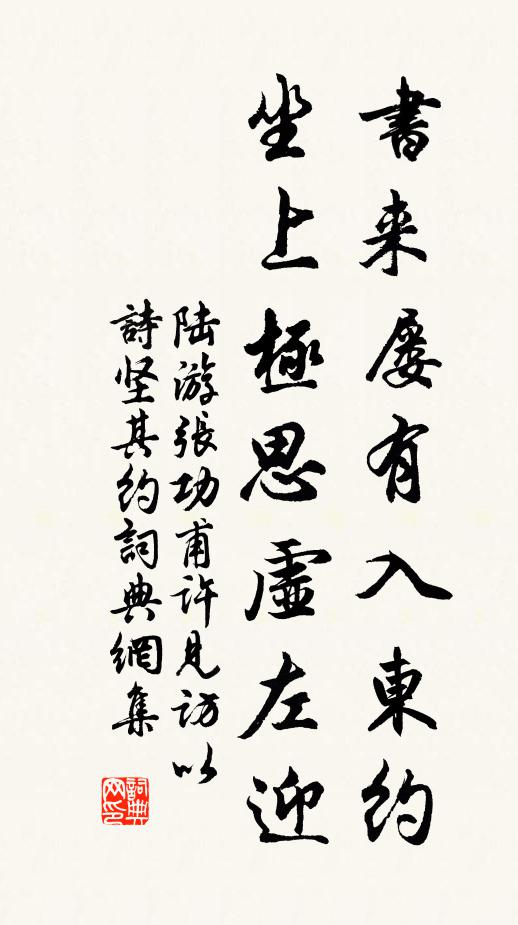 書来屡有入東約
坐上極思虛左迎
陆游張功甫許見訪以
詩坚其約詞典網集
詞典
网印